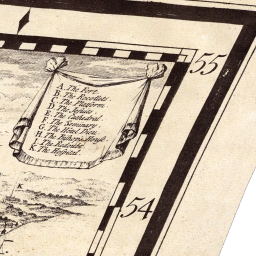 A. The Fort.
B. The Recollets.
C. The Platform.
D. The Jesuits.
E. The Cathedral.
F. The Seminary.
G. The Hôtel Dieu.
H. The Bishop's House.
I. The Redoubt.
K. The Hospital.
55
54
K